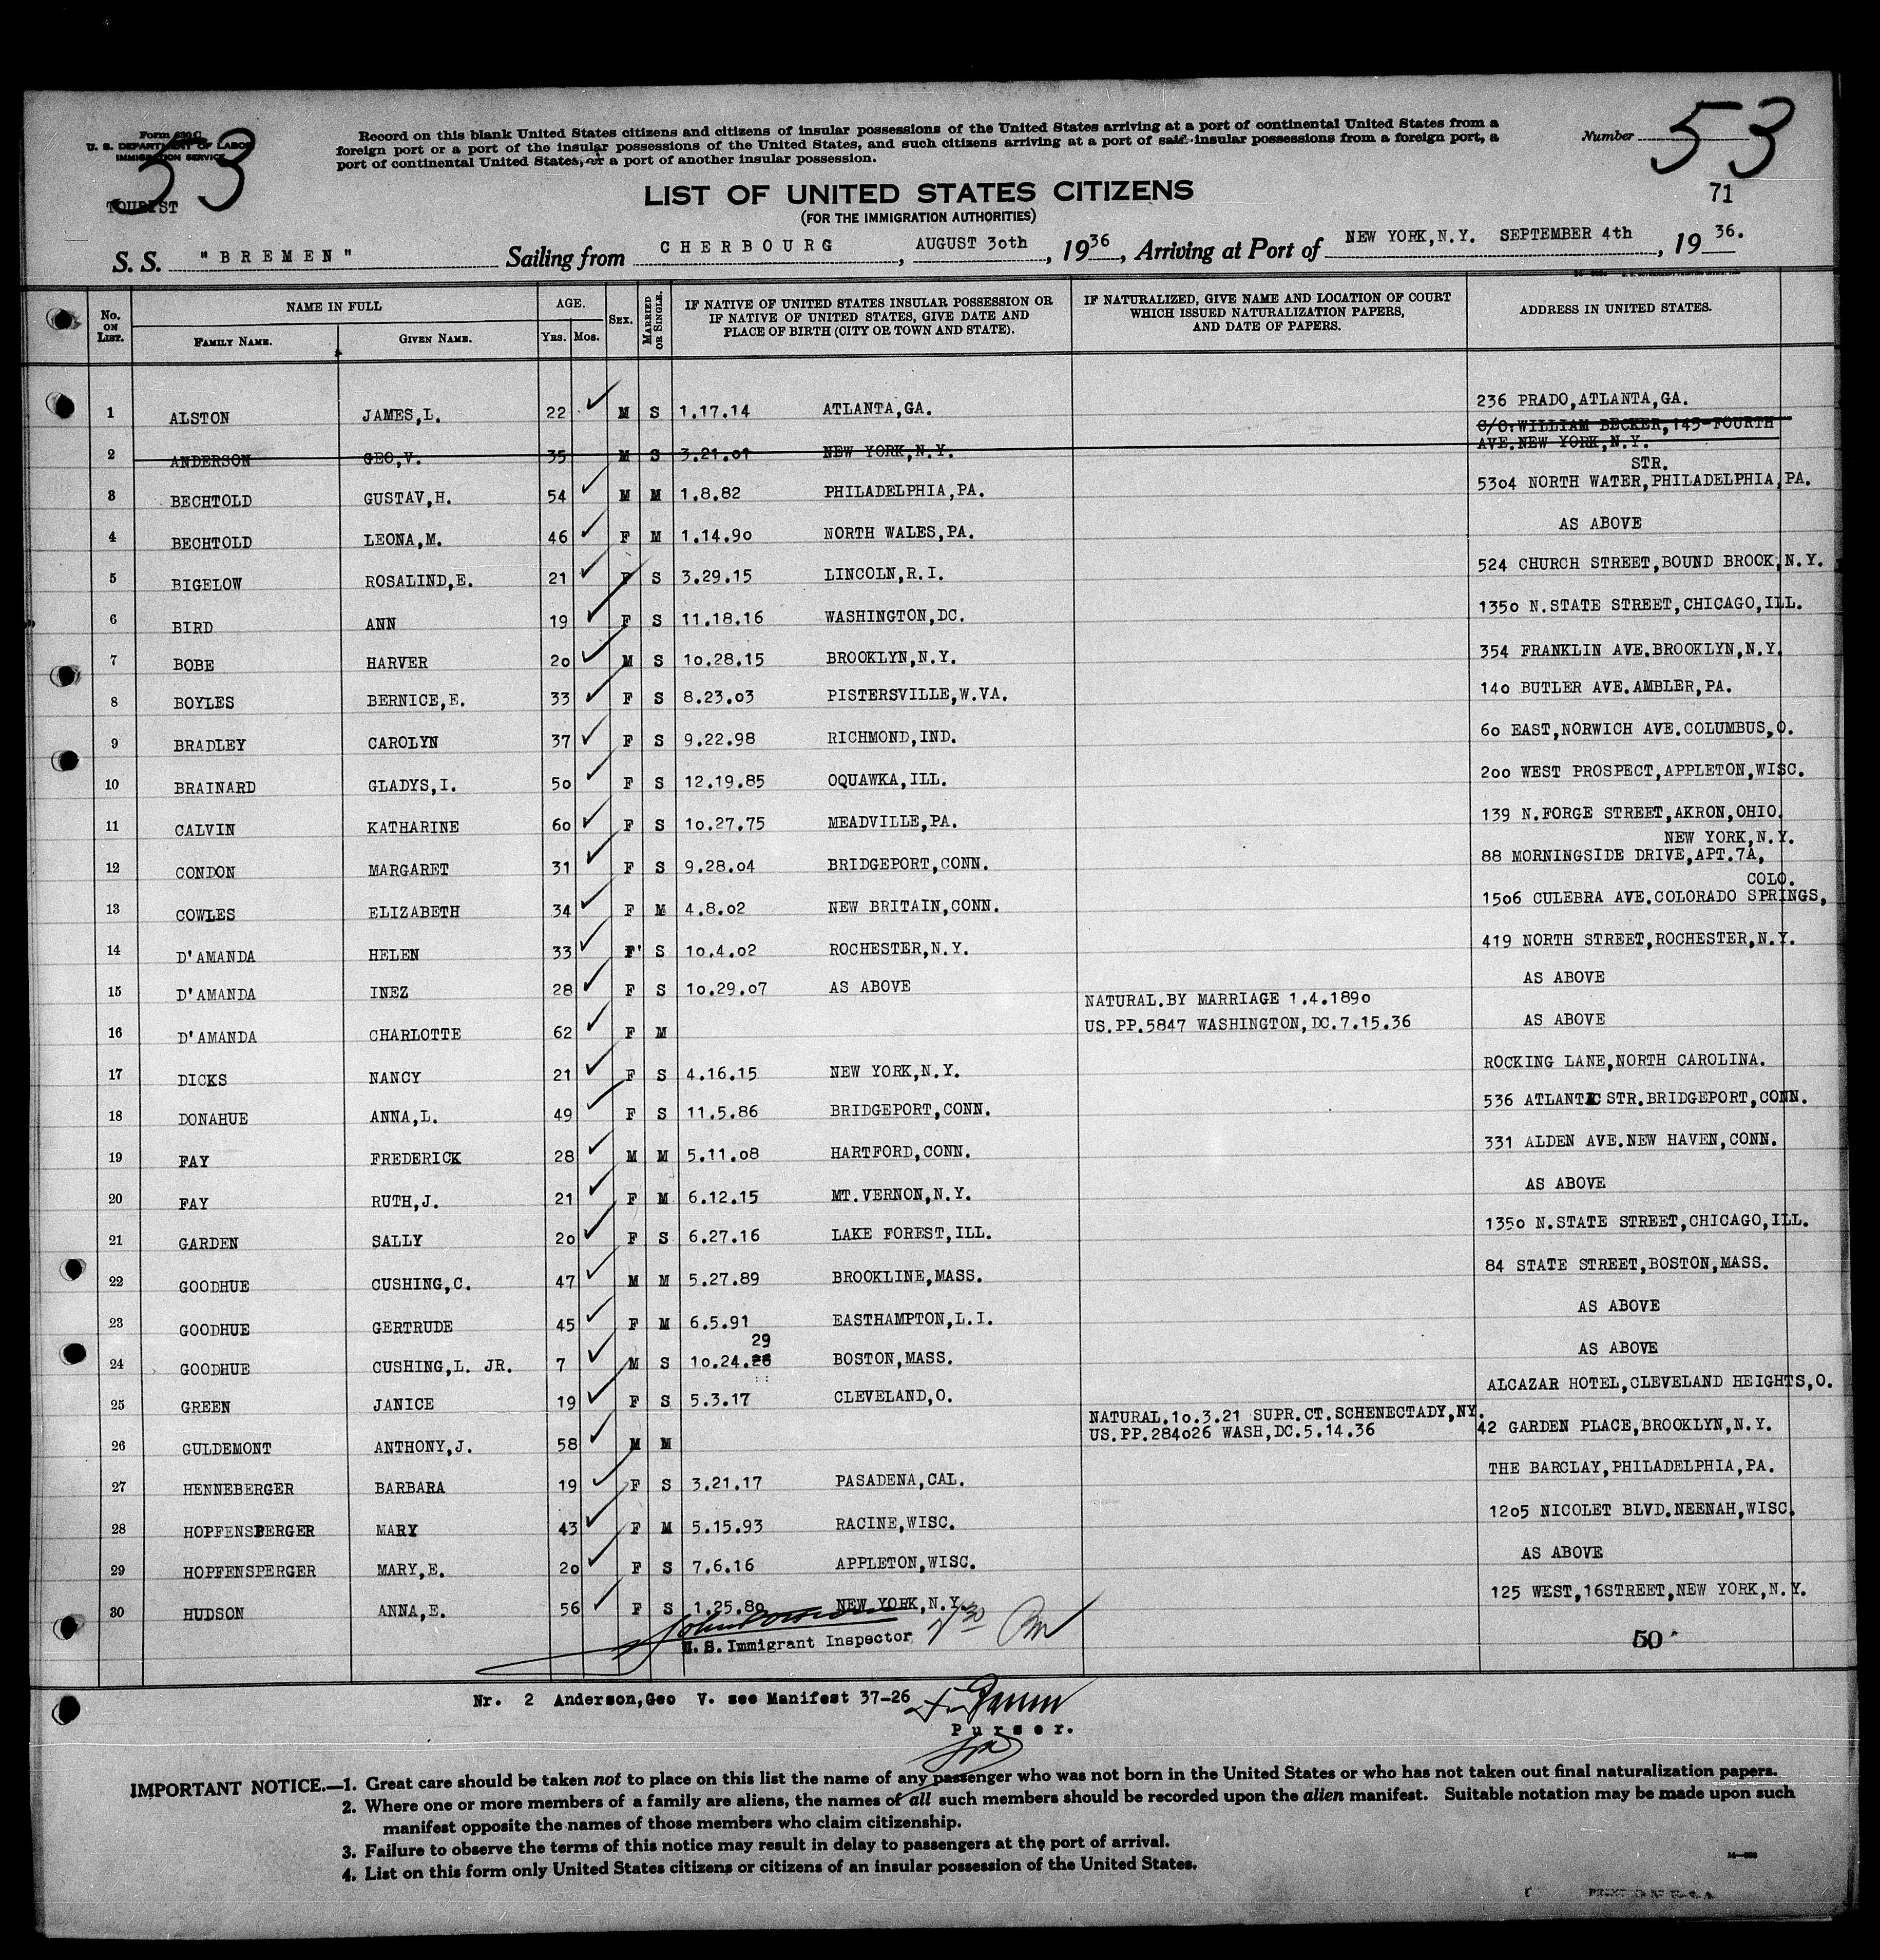 Form 630 C
U. S. DEPARTMENT OF LABOR
IMMIGRATION SERVICE
53
TOURIST
Record on this blank United States citizens and citizens of insular possessions of the United States arriving at a port of continental United States from a
foreign port or a port of the insular possessions of the United States, and such citizens arriving at a port of said insular possessions from a foreign port, a
port of continental United States, or a port of another insular possession.
Number 53
71
LIST OF UNITED STATES CITIZENS
(FOR THE IMMIGRATION AUTHORITIES)
S. S. "BREMEN" Sailing from CHERBOURG, AUGUST 30th, 1936, Arriving at Port of NEW YORK,N.Y. SEPTEMBER 4th, 1936.
No. ON LIST. NAME IN FULL FAMILY NAME. GIVEN NAME. AGE. YRS. MOS. SEX. MARRIED OR SINGLE. IF NATIVE OF UNITED STATES INSULAR POSSESSION OR IF NATIVE OF UNITED STATES, GIVE DATE AND PLACE OF BIRTH (CITY OR TOWN AND STATE). IF NATURALIZED, GIVE NAME AND LOCATION OF COURT WHICH ISSUED NATURALIZATION PAPERS, AND DATE OF PAPERS. ADDRESS IN UNITED STATES.
1 ALSTON JAMES,L. 22 M S 1.17.14 ATLANTA,GA. 236 PRADO,ATLANTA,GA.
2 ANDERSON GEO,V. 35 M S 3.21.01 NEW YORK,N.Y. C/O.WILLIAM BECKER,145-FOURTH AVE.NEW YORK,N.Y.
3 BECHTOLD GUSTAV,H. 54 M M 1.8.82 PHILADELPHIA,PA. 5304 NORTH WATER STR.,PHILADELPHIA,PA.
4 BECHTOLD LEONA,M. 46 F M 1.14.90 NORTH WALES,PA. AS ABOVE
5 BIGELOW ROSALIND,E. 21 F S 3.29.15 LINCOLN,R.I. 524 CHURCH STREET,BOUND BROOK,N.Y.
6 BIRD ANN 19 F S 11.18.16 WASHINGTON,DC. 1350 N.STATE STREET,CHICAGO,ILL.
7 BOBE HARVER 20 M S 10.28.15 BROOKLYN,N.Y. 354 FRANKLIN AVE.BROOKLYN,N.Y.
8 BOYLES BERNICE,E. 33 F S 8.23.03 PISTERSVILLE,W.VA. 140 BUTLER AVE.AMBLER,PA.
9 BRADLEY CAROLYN 37 F S 9.22.98 RICHMOND,IND. 60 EAST,NORWICH AVE.COLUMBUS,O.
10 BRAINARD GLADYS,I. 50 F S 12.19.85 OQUAWKA,ILL. 200 WEST PROSPECT,APPLETON,WISC.
11 CALVIN KATHARINE 60 F S 10.27.75 MEADVILLE,PA. 139 N.FORGE STREET,AKRON,OHIO.
12 CONDON MARGARET 31 F S 9.28.04 BRIDGEPORT,CONN. 88 MORNINGSIDE DRIVE,APT.7A, NEW YORK,N.Y.
13 COWLES ELIZABETH 34 F M 4.8.02 NEW BRITAIN,CONN. 1506 CULEBRA AVE.COLORADO SPRINGS, COLO.
14 D'AMANDA HELEN 33 F S 10.4.02 ROCHESTER,N.Y. 419 NORTH STREET,ROCHESTER,N.Y.
15 D'AMANDA INEZ 28 F S 10.29.07 AS ABOVE AS ABOVE
16 D'AMANDA CHARLOTTE 62 F M NATURAL.BY MARRIAGE 1.4.1890 US.PP.5847 WASHINGTON,DC.7.15.36 AS ABOVE
17 DICKS NANCY 21 F S 4.16.15 NEW YORK,N.Y. ROCKING LANE,NORTH CAROLINA.
18 DONAHUE ANNA,L. 49 F S 11.5.86 BRIDGEPORT,CONN. 536 ATLANTIC STR.BRIDGEPORT,CONN.
19 FAY FREDERICK 28 M M 5.11.08 HARTFORD,CONN. 331 ALDEN AVE.NEW HAVEN,CONN.
20 FAY RUTH,J. 21 F M 6.12.15 MT.VERNON,N.Y. AS ABOVE
21 GARDEN SALLY 20 F S 6.27.16 LAKE FOREST,ILL. 1350 N.STATE STREET,CHICAGO,ILL.
22 GOODHUE CUSHING,C. 47 M M 5.27.89 BROOKLINE,MASS. 84 STATE STREET,BOSTON,MASS.
23 GOODHUE GERTRUDE 45 F M 6.5.91 EASTHAMPTON,L.I. AS ABOVE
24 GOODHUE CUSHING,L. JR. 7 M S 10.24.29 BOSTON,MASS. AS ABOVE
25 GREEN JANICE 19 F S 5.3.17 CLEVELAND,O. ALCAZAR HOTEL,CLEVELAND HEIGHTS,O.
26 GULDEMONT ANTHONY,J. 58 M M NATURAL.10.3.21 SUPR.CT.SCHENECTADY,NY. US.PP.284026 WASH,DC.5.14.36 42 GARDEN PLACE,BROOKLYN,N.Y.
27 HENNEBERGER BARBARA 19 F S 3.21.17 PASADENA,CAL. THE BARCLAY,PHILADELPHIA,PA.
28 HOPFENSPERGER MARY 43 F M 5.15.93 RACINE,WISC. 1205 NICOLET BLVD.NEENAH,WISC.
29 HOPFENSPERGER MARY,E. 20 F S 7.6.16 APPLETON,WISC. AS ABOVE
30 HUDSON ANNA,E. 56 F S 1.25.80 NEW YORK,N.Y. 125 WEST,16STREET,NEW YORK,N.Y.
U. S. Immigrant Inspector
50
Nr. 2 Anderson,Geo V. see Manifest 37-26
Purser.
IMPORTANT NOTICE.—1. Great care should be taken not to place on this list the name of any passenger who was not born in the United States or who has not taken out final naturalization papers.
2. Where one or more members of a family are aliens, the names of all such members should be recorded upon the alien manifest. Suitable notation may be made upon such
manifest opposite the names of those members who claim citizenship.
3. Failure to observe the terms of this notice may result in delay to passengers at the port of arrival.
4. List on this form only United States citizens or citizens of an insular possession of the United States.